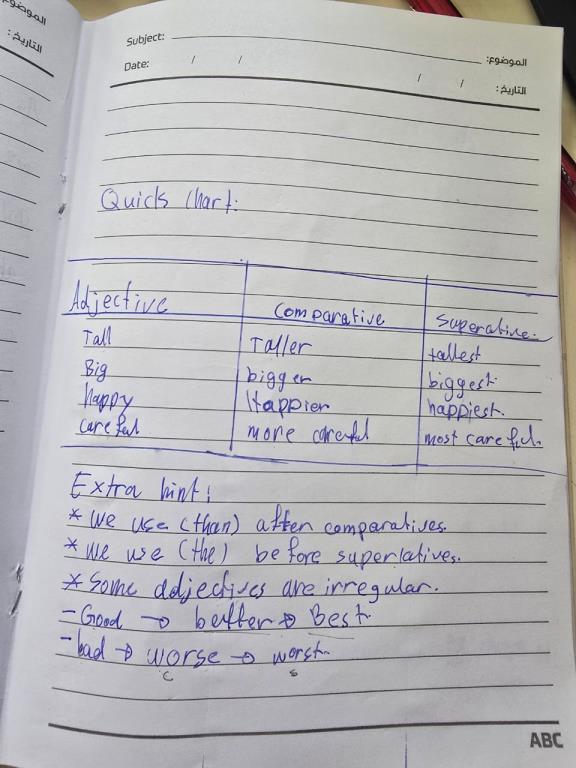 الموضوع
التاريخ:
Subject: الموضوع:
Date: / / / / التاريخ:
Quick Chart:
Adjective Comparative Superative.
Tall Taller tallest
Big bigger biggest.
happy Happier happiest.
careful more careful most careful.
Extra hint:
* we use (than) after comparatives.
* we use (the) before superlatives.
* Some adjectives are irregular.
- Good → better → Best.
- bad → worse → worst.
c s
ABC